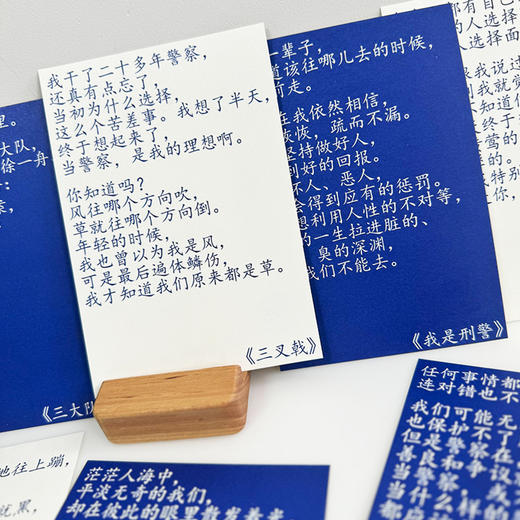 我干了二十多年警察，
还真有点忘了，
当初为什么选择，
这么个苦差事。我想了半天，
终于想起来了，
当警察，是我的理想啊。
你知道吗？
风往哪个方向吹，
草就往哪个方向倒。
年轻的时候，
我也曾以为我是风，
可是最后遍体鳞伤，
我才知道我们原来都是草。
《三叉戟》
里。
大队，
徐一舟
：
《三大队
一辈子，
道该往哪儿去的时候，
前走。
在我依然相信，
恢恢，疏而不漏。
坚持做好人，
到好的回报。
坏人、恶人，
会得到应有的惩罚。
想利用人性的不对等，
的一生拉进脏的、
臭的深渊，
我们不能去。
《我是刑警》
都有自己
人选择
选择面
跟我说过
特别
是你，
地往上蹦，
就黑，
茫茫人海中，
平淡无奇的我们，
却在彼此的眼里散发着光
任何事情都
连对错也不
我们可能无
也保护不了
但是警察
善良和争议
当警察，或
当什么样的
都应